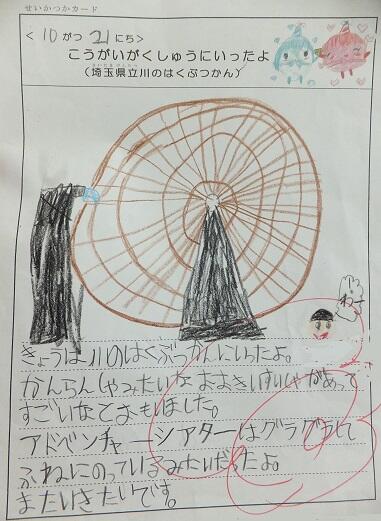 せいかつかカード
<10がつ21にち>
こうがいがくしゅうにいったよ
(埼玉県立川のはくぶつかん)
わー
きょうは川のはくぶつかんにいったよ。
かんらんしゃみたいなおおきいすいしゃがあって
すごいなとおもいました。
アドベンチャーシアターはグラグラして
ふねにのっているみたいだったよ。
またいきたいです。